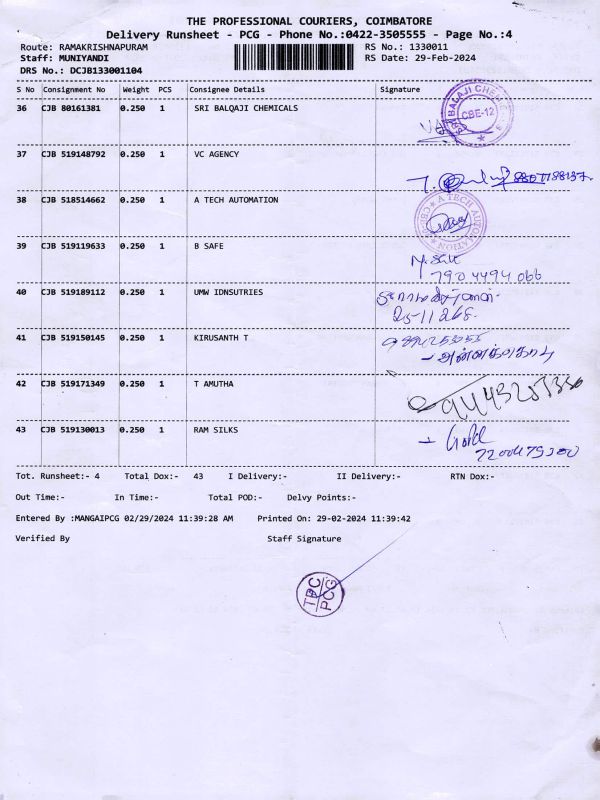 THE PROFESSIONAL COURIERS, COIMBATORE
Delivery Runsheet - PCG - Phone No.:0422-3505555 - Page No.:4
Route: RAMAKRISHNAPURAM RS No.: 1330011
Staff: MUNIYANDI RS Date: 29-Feb-2024
DRS No.: DCJB133001104
S No Consignment No Weight PCS Consignee Details Signature
36 CJB 80161381 0.250 1 SRI BALQAJI CHEMICALS
CBE-12
37 CJB 519148792 0.250 1 VC AGENCY
38 CJB 518514662 0.250 1 A TECH AUTOMATION
A TECH AUTOMATION
39 CJB 519119633 0.250 1 B SAFE
790 4494 066
40 CJB 519189112 0.250 1 UMW IDNSUTRIES
41 CJB 519150145 0.250 1 KIRUSANTH T
42 CJB 519171349 0.250 1 T AMUTHA
43 CJB 519130013 0.250 1 RAM SILKS
Tot. Runsheet:- 4 Total Dox:- 43 I Delivery:- II Delivery:- RTN Dox:-
Out Time:- In Time:- Total POD:- Delvy Points:-
Entered By :MANGAIPCG 02/29/2024 11:39:28 AM Printed On: 29-02-2024 11:39:42
Verified By Staff Signature
TPC
PCG